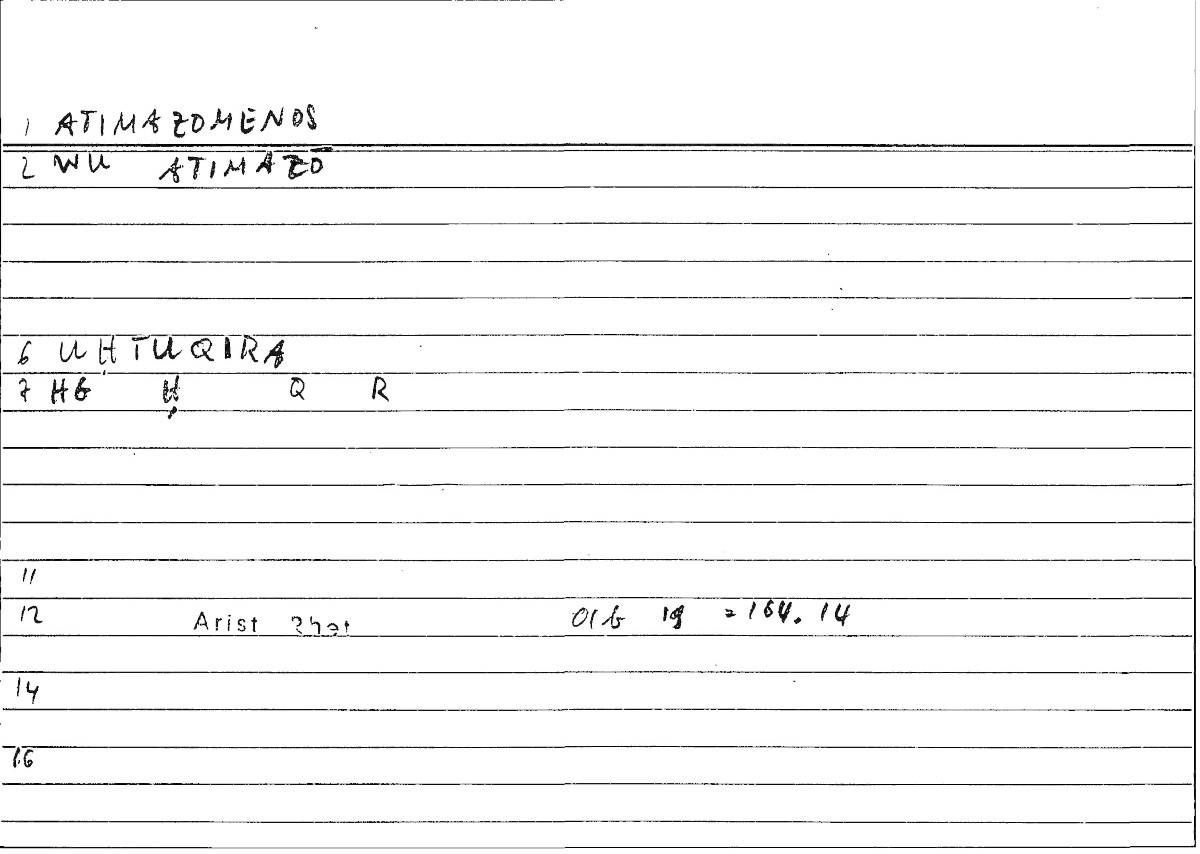 1 ATIMAZOMENOS
2 WU ATIMAZŌ
6 UḤTUQIRA
7 HG Ḥ Q R
11
12 Arist Rhet 01b 19 = 164.14
14
16